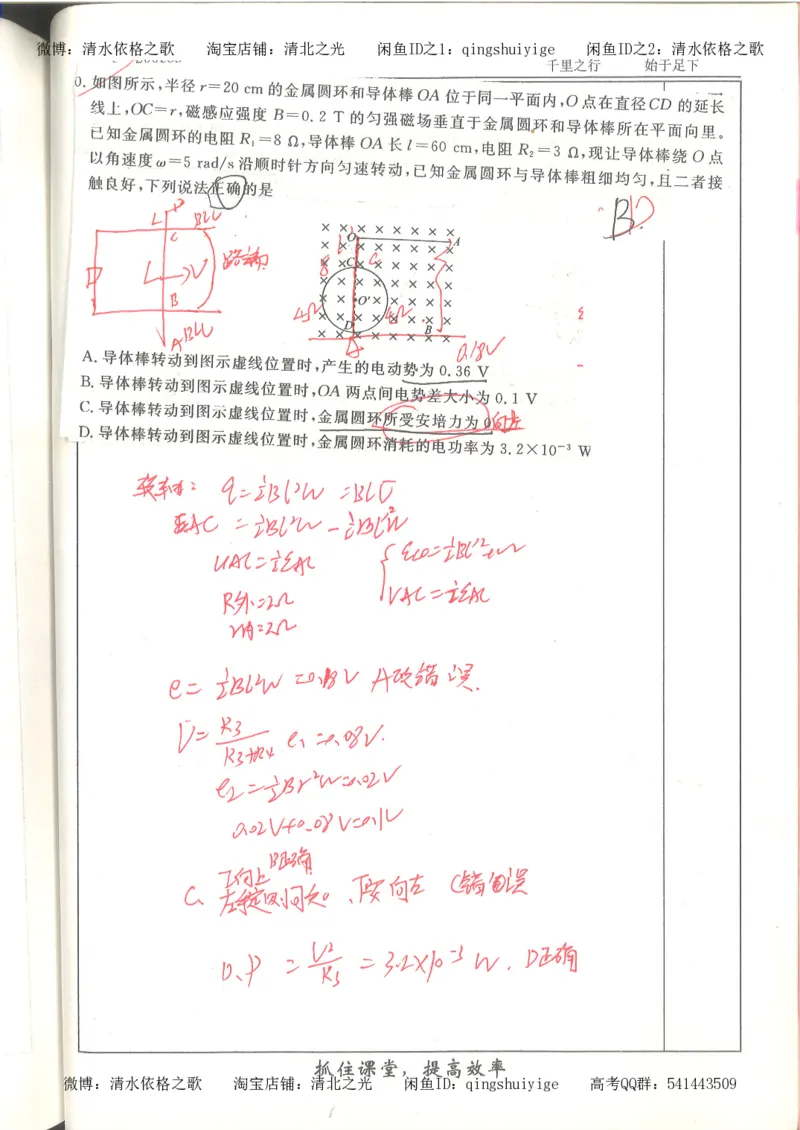 微博：清水依格之歌 淘宝店铺：清北之光 闲鱼ID之1：qingshuiyige 闲鱼ID之2：清水依格之歌
千里之行 始于足下
0. 如图所示,半径 r=20 cm 的金属圆环和导体棒 OA 位于同一平面内,O 点在直径 CD 的延长
线上,OC=r,磁感应强度 B=0.2 T 的匀强磁场垂直于金属圆环和导体棒所在平面向里。
已知金属圆环的电阻 R₁=8 Ω,导体棒 OA 长 l=60 cm,电阻 R₂=3 Ω,现让导体棒绕 O 点
以角速度 ω=5 rad/s 沿顺时针方向匀速转动,已知金属圆环与导体棒粗细均匀,且二者接
触良好,下列说法正确的是
BD
L
BLV
C
L→V
B
A BLV
O
A
C
O'
4Ω
4Ω
D
B
A
0.18V
A. 导体棒转动到图示虚线位置时,产生的电动势为 0.36 V
B. 导体棒转动到图示虚线位置时,OA 两点间电势差大小为 0.1 V
C. 导体棒转动到图示虚线位置时,金属圆环所受安培力为 0
向左
D. 导体棒转动到图示虚线位置时,金属圆环消耗的电功率为 3.2×10⁻³ W
UAC=½EAC
R外=2Ω
UAC=½EAC
e=½Bl²W=0.18V A项错误.
e₁=0.08V.
e₂=½Br²W=0.02V
0.02V+0.08V=0.1V
B正确
C. 左手定则 向左 C错误
D. P=U²/R₃=3.2×10⁻³W. D正确
抓住课堂，提高效率
微博：清水依格之歌 淘宝店铺：清北之光 闲鱼ID：qingshuiyige 高考QQ群：541443509